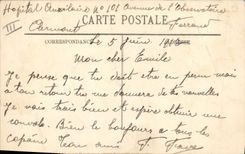 Hôpital Auxiliaire No 101 Avenue de l'Observatoire
III Clermont Ferrand
CARTE POSTALE
CORRESPONDANCE
Le 5 Juin
Mon cher Emile
Je pense que tu doit être en perm mais
à ton retour tu me donnera de tes nouvelles
Je vais très bien et espère obtenir une
convalo. Bien le bonjour à tous les
copains Ton ami F.